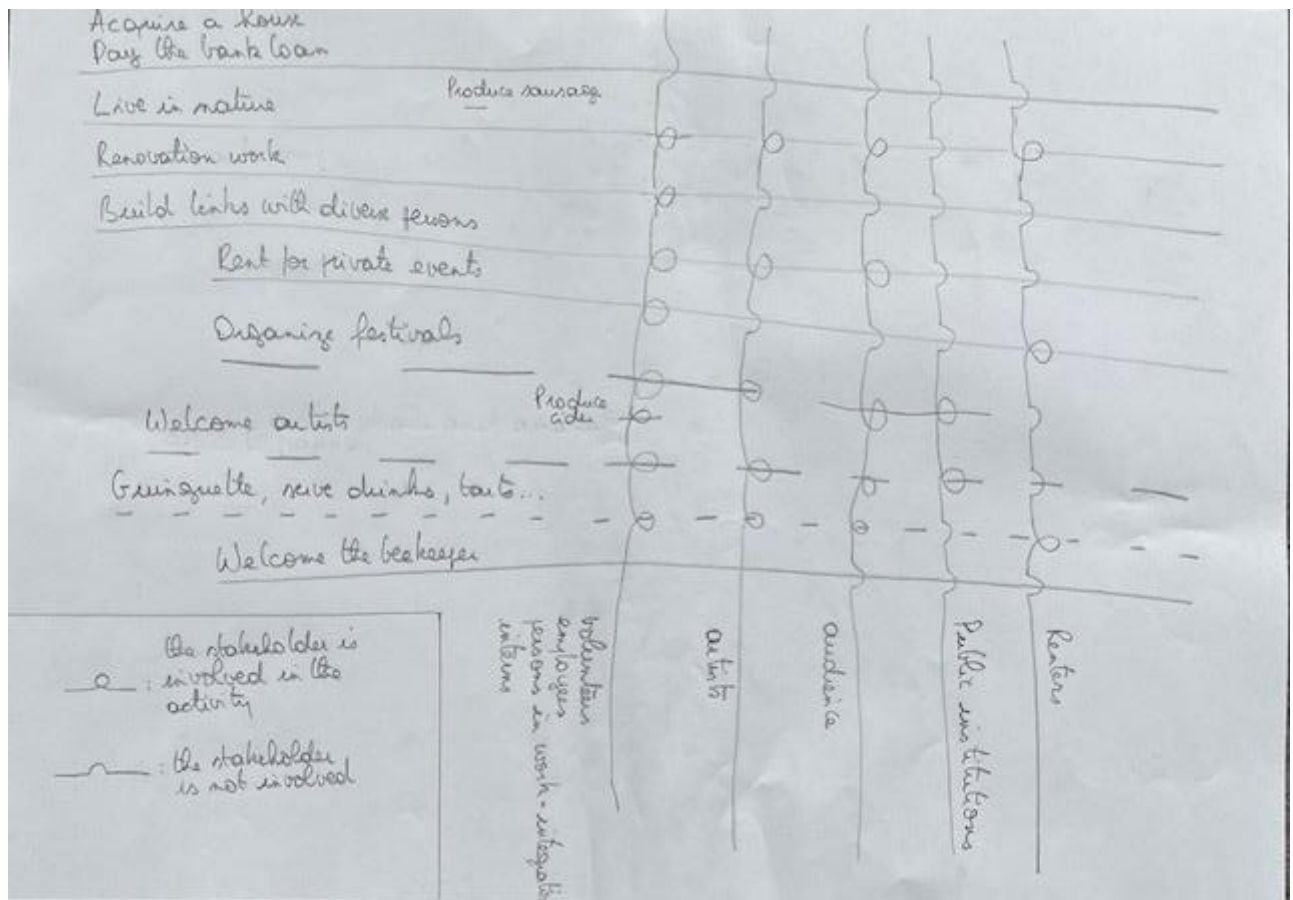 Acquire a house
Pay the bank loan
Live in nature
Produce sausage
Renovation work
Build links with diverse persons
Rent for private events
Organize festivals
Produce
cider
Welcome artists
Guinguette, serve drinks, tarts...
Welcome the beekeeper
the stakeholder is
: involved in the
activity
: the stakeholder
is not involved
volunteers
employees
persons in work-integratio
interns
artists
audience
Public institutions
Renters